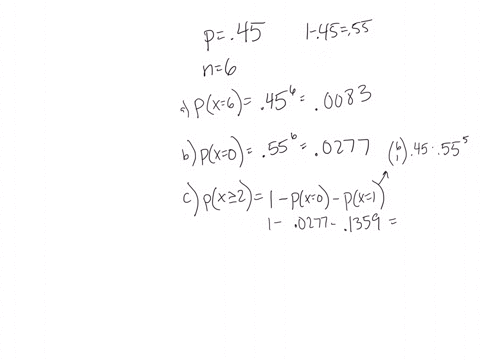 p=.45 1-.45=.55
n=6
a) P(x=6) = .45⁶ = .0083
b) P(x=0) = .55⁶ = .0277 (6 1) .45 · .55⁵
c) P(x≥2) = 1 - P(x=0) - P(x=1)
1 - .0277 - .1359 =